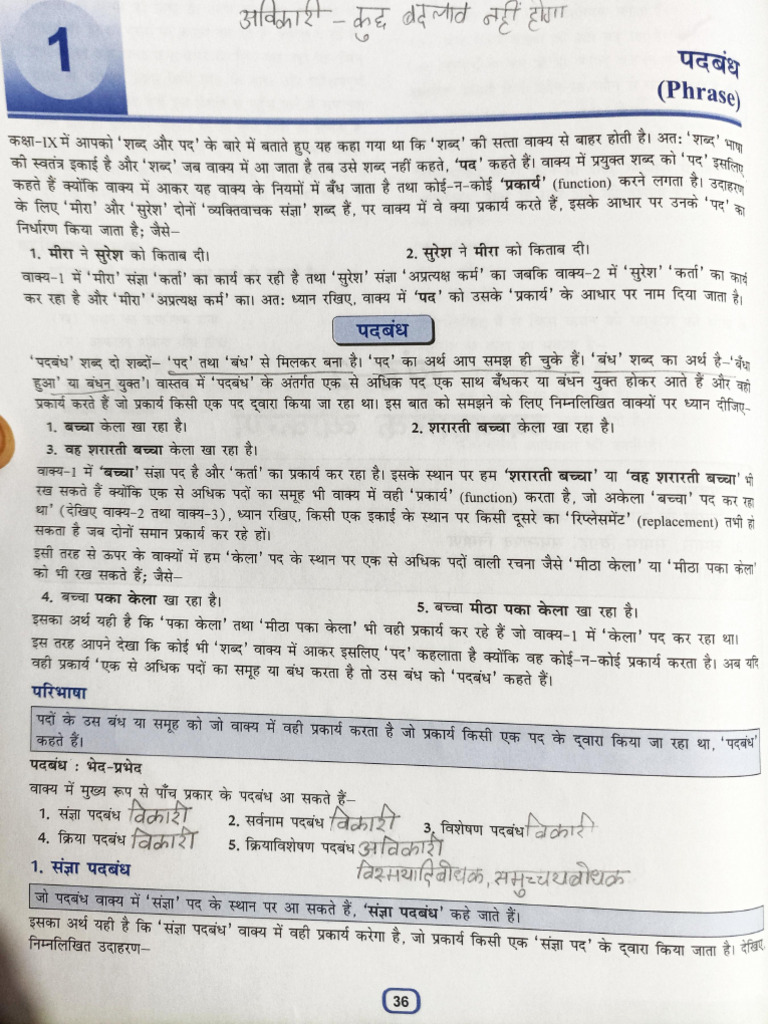 अविकारी – कुछ बदलाव नहीं होगा
1
पदबंध
(Phrase)
कक्षा-IX में आपको ‘शब्द और पद’ के बारे में बताते हुए यह कहा गया था कि ‘शब्द’ की सत्ता वाक्य से बाहर होती है। अतः ‘शब्द’ भाषा
की स्वतंत्र इकाई है और ‘शब्द’ जब वाक्य में आ जाता है तब उसे शब्द नहीं कहते, ‘पद’ कहते हैं। वाक्य में प्रयुक्त शब्द को ‘पद’ इसलिए
कहते हैं क्योंकि वाक्य में आकर यह वाक्य के नियमों में बँध जाता है तथा कोई-न-कोई ‘प्रकार्य’ (function) करने लगता है। उदाहरण
के लिए ‘मीरा’ और ‘सुरेश’ दोनों ‘व्यक्तिवाचक संज्ञा’ शब्द हैं, पर वाक्य में वे क्या प्रकार्य करते हैं, इसके आधार पर उनके ‘पद’ का
निर्धारण किया जाता है; जैसे–
1. मीरा ने सुरेश को किताब दी। 2. सुरेश ने मीरा को किताब दी।
वाक्य-1 में ‘मीरा’ संज्ञा ‘कर्ता’ का कार्य कर रही है तथा ‘सुरेश’ संज्ञा ‘अप्रत्यक्ष कर्म’ का जबकि वाक्य-2 में ‘सुरेश’ ‘कर्ता’ का कार्य
कर रहा है और ‘मीरा’ ‘अप्रत्यक्ष कर्म’ का। अतः ध्यान रखिए, वाक्य में ‘पद’ को उसके ‘प्रकार्य’ के आधार पर नाम दिया जाता है।
पदबंध
‘पदबंध’ शब्द दो शब्दों– ‘पद’ तथा ‘बंध’ से मिलकर बना है। ‘पद’ का अर्थ आप समझ ही चुके हैं। ‘बंध’ शब्द का अर्थ है–‘बँधा
हुआ’ या बंधन युक्त’। वास्तव में ‘पदबंध’ के अंतर्गत एक से अधिक पद एक साथ बँधकर या बंधन युक्त होकर आते हैं और वही
प्रकार्य करते हैं जो प्रकार्य किसी एक पद द्वारा किया जा रहा था। इस बात को समझने के लिए निम्नलिखित वाक्यों पर ध्यान दीजिए–
1. बच्चा केला खा रहा है। 2. शरारती बच्चा केला खा रहा है।
3. वह शरारती बच्चा केला खा रहा है।
वाक्य-1 में ‘बच्चा’ संज्ञा पद है और ‘कर्ता’ का प्रकार्य कर रहा है। इसके स्थान पर हम ‘शरारती बच्चा’ या ‘वह शरारती बच्चा’ भी
रख सकते हैं क्योंकि एक से अधिक पदों का समूह भी वाक्य में वही ‘प्रकार्य’ (function) करता है, जो अकेला ‘बच्चा’ पद कर रहा
था’ (देखिए वाक्य-2 तथा वाक्य-3), ध्यान रखिए, किसी एक इकाई के स्थान पर किसी दूसरे का ‘रिप्लेसमेंट’ (replacement) तभी हो
सकता है जब दोनों समान प्रकार्य कर रहे हों।
इसी तरह से ऊपर के वाक्यों में हम ‘केला’ पद के स्थान पर एक से अधिक पदों वाली रचना जैसे ‘मीठा केला’ या ‘मीठा पका केला’
को भी रख सकते हैं; जैसे–
4. बच्चा पका केला खा रहा है। 5. बच्चा मीठा पका केला खा रहा है।
इसका अर्थ यही है कि ‘पका केला’ तथा ‘मीठा पका केला’ भी वही प्रकार्य कर रहे हैं जो वाक्य-1 में ‘केला’ पद कर रहा था।
इस तरह आपने देखा कि कोई भी ‘शब्द’ वाक्य में आकर इसलिए ‘पद’ कहलाता है क्योंकि वह कोई-न-कोई प्रकार्य करता है। अब यदि
वही प्रकार्य ‘एक से अधिक पदों का समूह या बंध करता है तो उस बंध को ‘पदबंध’ कहते हैं।
परिभाषा
पदों के उस बंध या समूह को जो वाक्य में वही प्रकार्य करता है जो प्रकार्य किसी एक पद के द्वारा किया जा रहा था, ‘पदबंध’
कहते हैं।
पदबंध : भेद-प्रभेद
वाक्य में मुख्य रूप से पाँच प्रकार के पदबंध आ सकते हैं–
1. संज्ञा पदबंध विकारी 2. सर्वनाम पदबंध विकारी 3. विशेषण पदबंध विकारी
4. क्रिया पदबंध विकारी 5. क्रियाविशेषण पदबंध अविकारी
विस्मयादिबोधक, समुच्चयबोधक
1. संज्ञा पदबंध
जो पदबंध वाक्य में ‘संज्ञा’ पद के स्थान पर आ सकते हैं, ‘संज्ञा पदबंध’ कहे जाते हैं।
इसका अर्थ यही है कि ‘संज्ञा पदबंध’ वाक्य में वही प्रकार्य करेगा है, जो प्रकार्य किसी एक ‘संज्ञा पद’ के द्वारा किया जाता है। देखिए,
निम्नलिखित उदाहरण–
36